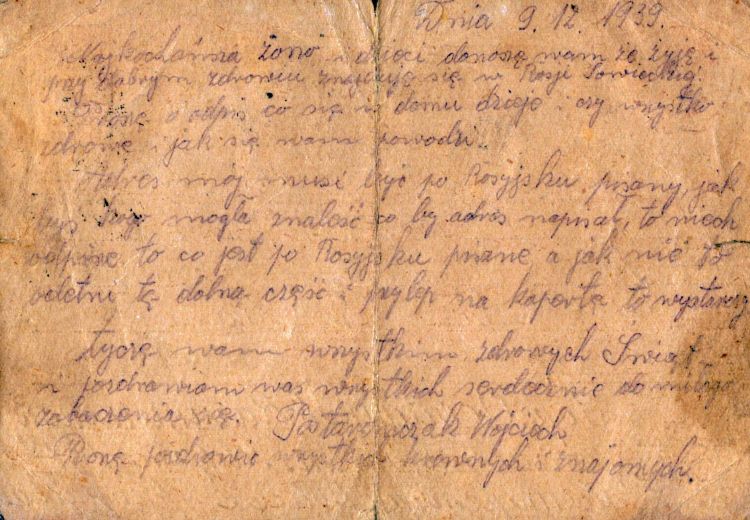 Dnia 9. 12. 1939.
Najkochańsza żono i dzieci donoszę wam że żyję i
przy dobrym zdrowiu znajduję się w Rosji Sowieckiej.
Proszę o odpis co się w domu dzieje i czy wszystko
zdrowe i jak się wam powodzi.
Adres mój musi być po Rosyjsku pisany, jak
byś kogo mogła znaleść co by adres napisał, to niech
odpisze to co jest po Rosyjsku pisane a jak nie to
odetni tą dolną część i przylep na kopertę to wystarczy
życzę wam wszystkim zdrowych Świąt
i pozdrawiam was wszystkich serdecznie do miłego
zobaczenia się. Wojciech
Proszę pozdrowić wszystkich krewnych i znajomych.